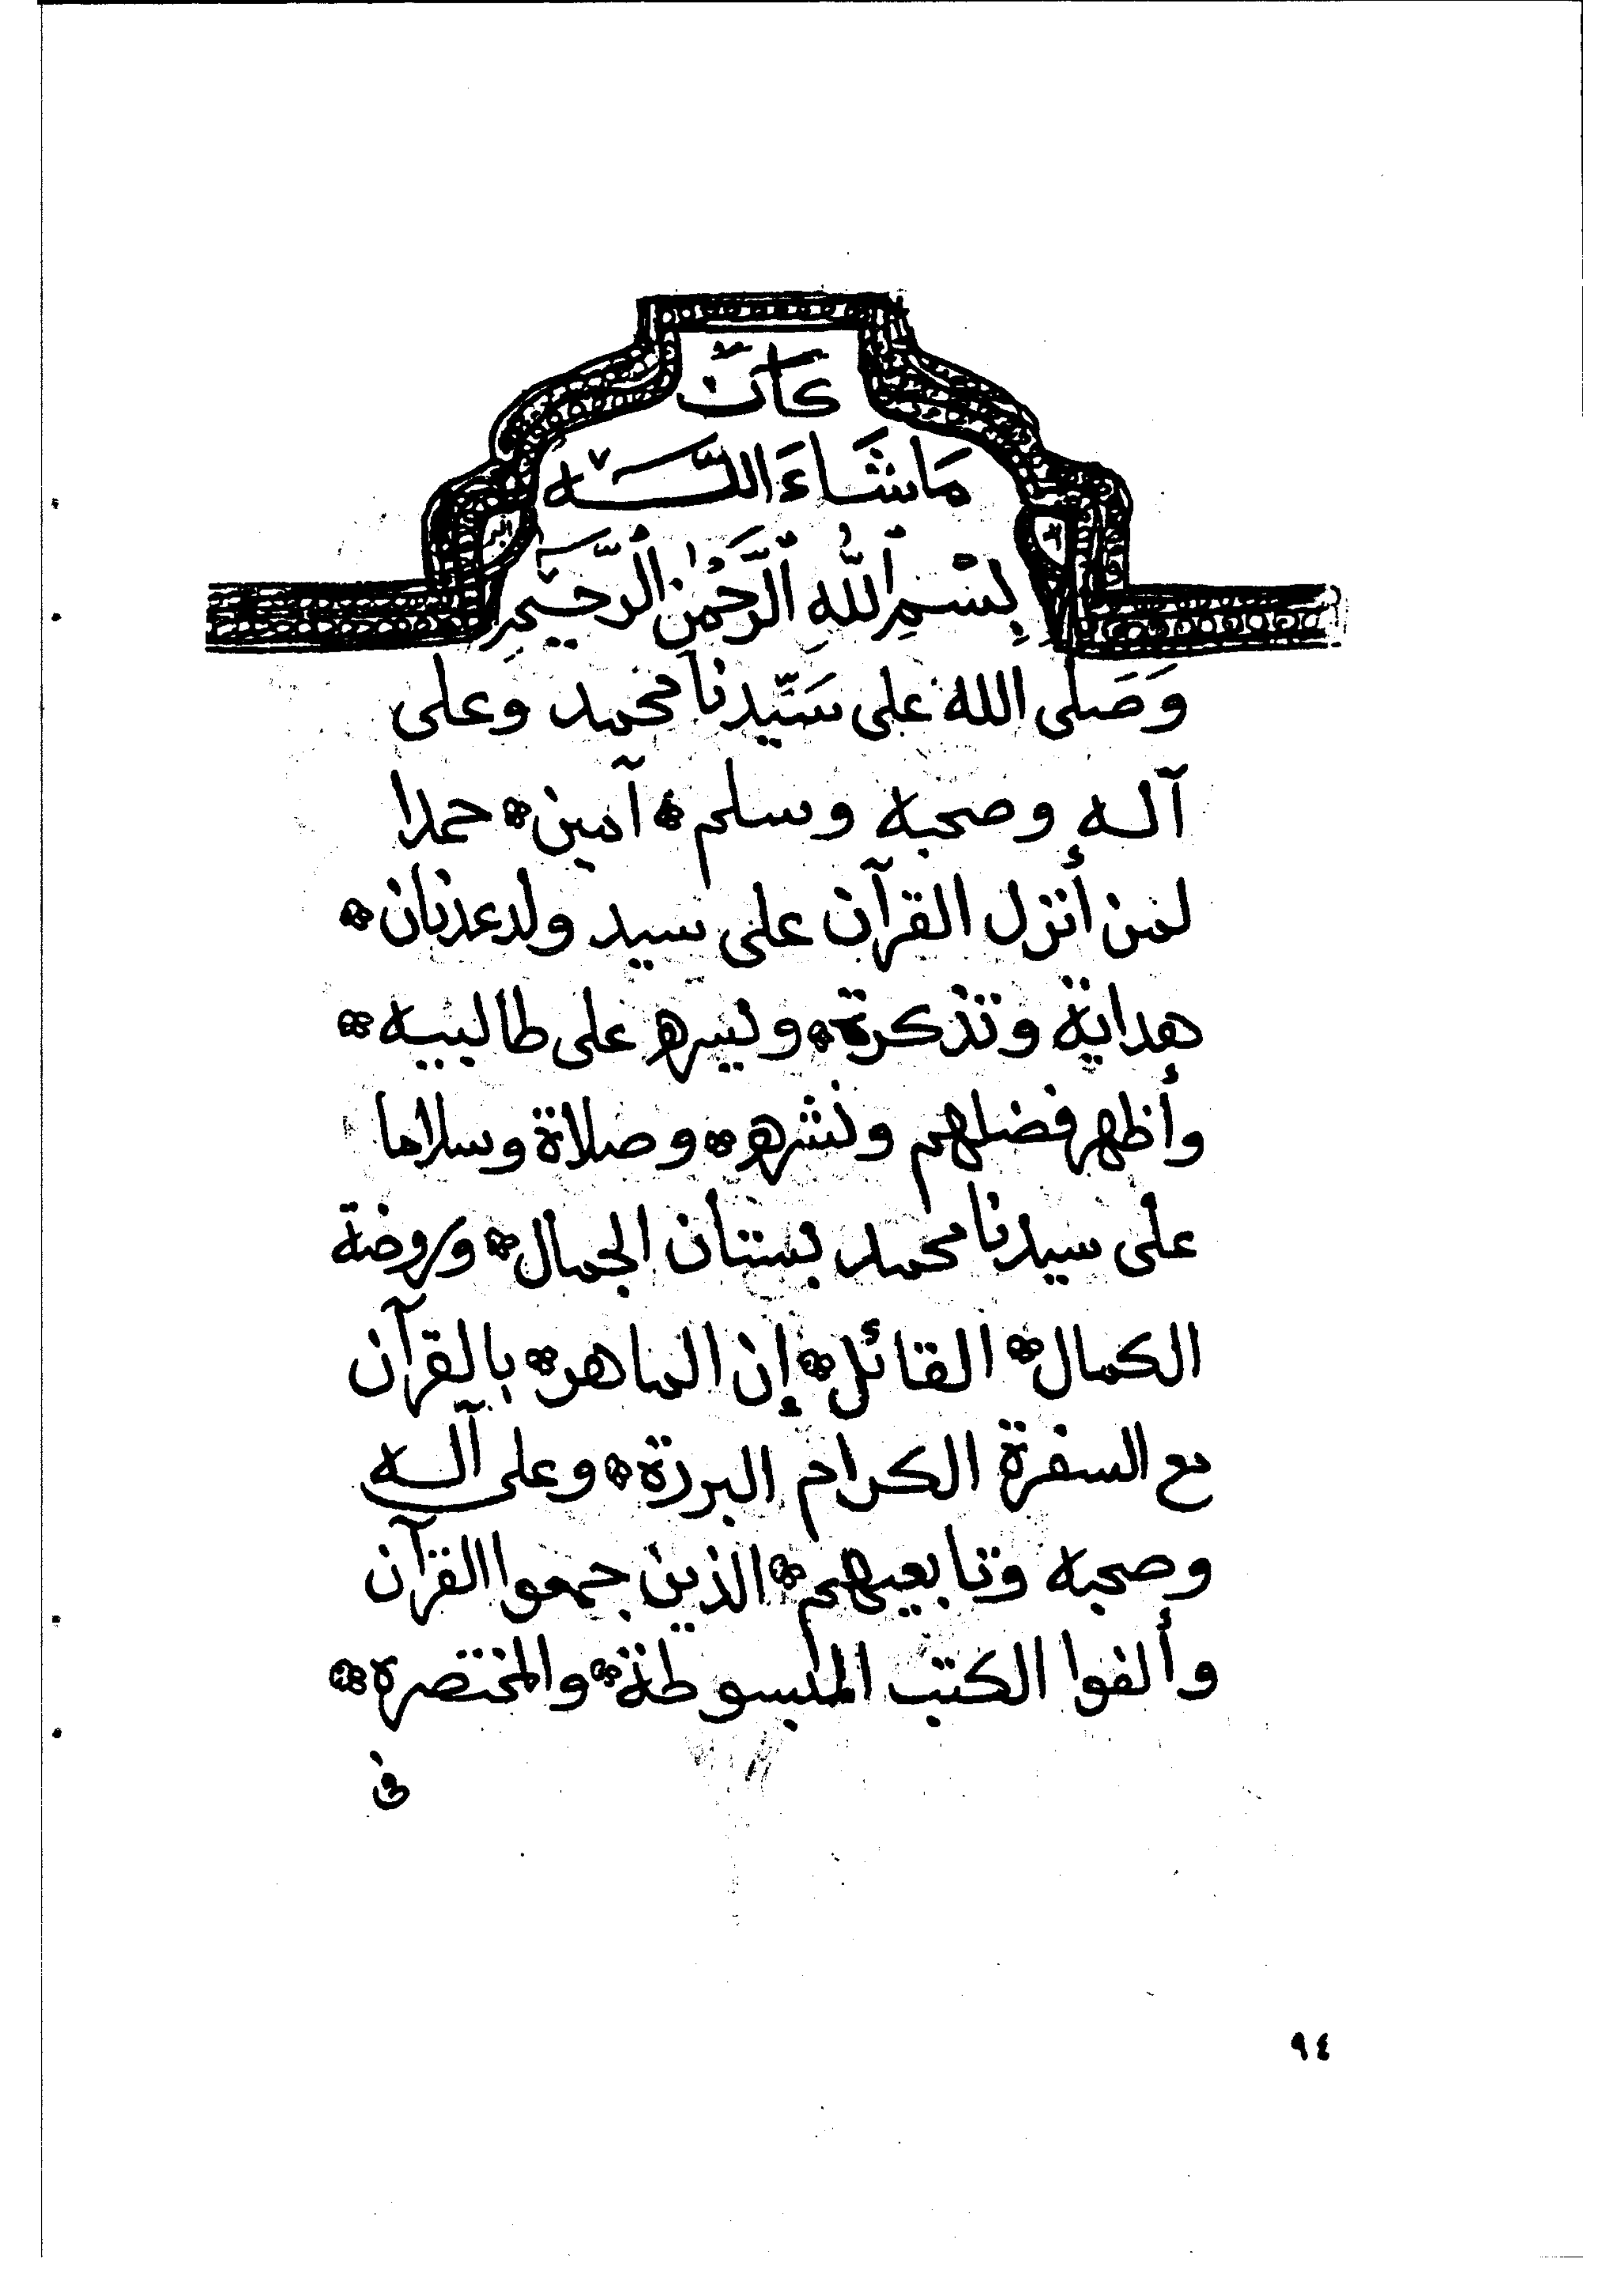 كان
مَا شَاءَ اللَّه
بِسْمِ اللهِ الرَّحْمٰنِ الرَّحِيمِ
وَصَلى الله على سَيّدنا محمد وعلى
آله وصحبه وسلم * آمين * حمدا
لمن أنزل القرآن على سيد ولد عدنان *
هداية وتذكرة * ويسره على طالبيه *
وأظهر فضلهم ونشره * وصلاة وسلاما
على سيدنا محمد بستان الجمال * وروضة
الكمال * القائل * إن الماهر * بالقرآن
مع السفرة الكرام البررة * وعلى آله
وصحبه وتابعيهم * الذين جمعوا القرآن
وألفوا الكتب المبسوطة * والمختصره *
في
٩٤